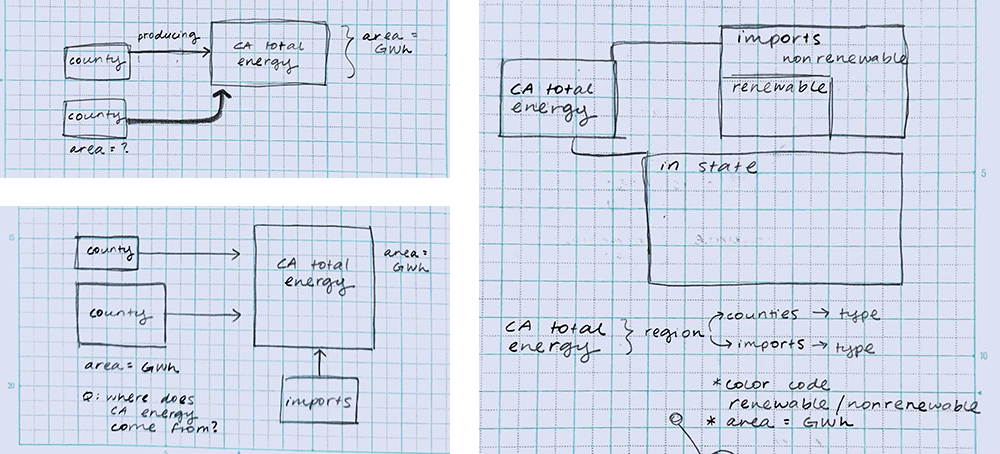 producing
county
CA total
energy
area =
GWh
county
area = ?
county
CA total
energy
area =
GWh
county
area = GWh
imports
Q: where does
CA energy
come from?
imports
nonrenewable
renewable
CA total
energy
in state
5
CA total
energy
region
counties → type
imports → type
*color code
renewable/nonrenewable
* area = GWh
15
20
10